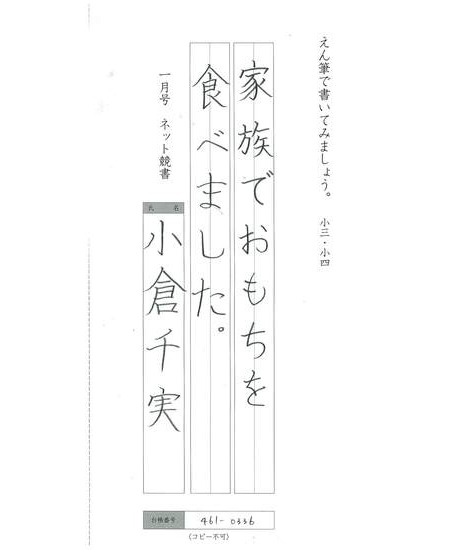 えん筆で書いてみましょう。 小三・小四
家族でおもちを
食べました。
一月号 ネット競書
氏名
小倉千実
台帳番号 461-0336
(コピー不可)